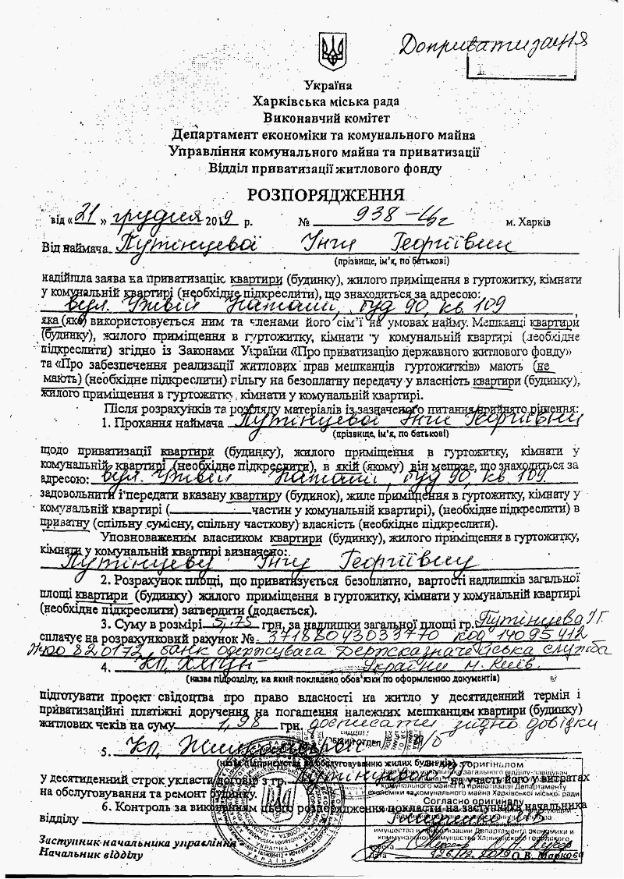 Доприватизація
Україна
Харківська міська рада
Виконавчий комітет
Департамент економіки та комунального майна
Управління комунального майна та приватизації
Відділ приватизації житлового фонду
РОЗПОРЯДЖЕННЯ
від « 21 » грудня 2019 р. № 938 м. Харків
Від наймача Путінцевої Інги Георгіївни
(прізвище, ім'я, по батькові)
надійшла заява на приватизацію квартири (будинку), жилого приміщення в гуртожитку, кімнати
у комунальній квартирі (необхідне підкреслити), що знаходиться за адресою:
вул. Ужвій Наталії, буд 90, кв. 109
яка (яке) використовується ним та членами його сім'ї на умовах найму. Мешканці квартири
(будинку), жилого приміщення в гуртожитку, кімнати у комунальній квартирі (необхідне
підкреслити) згідно із Законами України «Про приватизацію державного житлового фонду»
та «Про забезпечення реалізації житлових прав мешканців гуртожитків» мають (не
мають) (необхідне підкреслити) пільгу на безоплатну передачу у власність квартири (будинку),
жилого приміщення в гуртожитку, кімнати у комунальній квартирі.
Після розрахунків та розгляду матеріалів із зазначеного питання прийнято рішення:
1. Прохання наймача Путінцевої Інги Георгіївни
(прізвище, ім'я, по батькові)
щодо приватизації квартири (будинку), жилого приміщення в гуртожитку, кімнати у
комунальній квартирі (необхідне підкреслити), в якій (якому) він мешкає, що знаходиться за
адресою: вул. Ужвій Наталії, буд 90, кв. 109
задовольнити і передати вказану квартиру (будинок), жиле приміщення в гуртожитку, кімнату у
комунальній квартирі ( частин у комунальній квартирі), (необхідне підкреслити) в
приватну (спільну сумісну, спільну часткову) власність (необхідне підкреслити).
Уповноваженим власником квартири (будинку), жилого приміщення в гуртожитку,
кімнати у комунальній квартирі визначено:
Путінцеву Інгу Георгіївну
2. Розрахунок площі, що приватизується безоплатно, вартості надлишків загальної
площі квартири (будинку) жилого приміщення в гуртожитку, кімнати у комунальній квартирі
(необхідне підкреслити) затвердити (додається).
3. Суму в розмірі 5,75 грн, за надлишки загальної площі гр. Путінцева І Г
сплачує на розрахунковий рахунок № 37188043033770 код 14095412
МФО 820172, банк одержувача Держказначейська служба
4. України м. Київ.
(назва підрозділу, на який покладено обов'язки по оформленню документів)
підготувати проект свідоцтва про право власності на житло у десятиденний термін і
приватизаційні платіжні доручення на погашення належних мешканцям квартири (будинку)
житлових чеків на суму грн. дописати згідно довідки
5. КП Жилкомсервіс
(назва підприємства по обслуговуванню жилих будинків)
у десятиденний строк укласти договір з гр. Путінцевою на участь його у витратах
на обслуговування та ремонт будинку.
6. Контроль за виконанням цього розпорядження покласти на заступника начальника
відділу
Согласно оригиналу
Заступник начальника управління
Начальник відділу О.В. Маркова